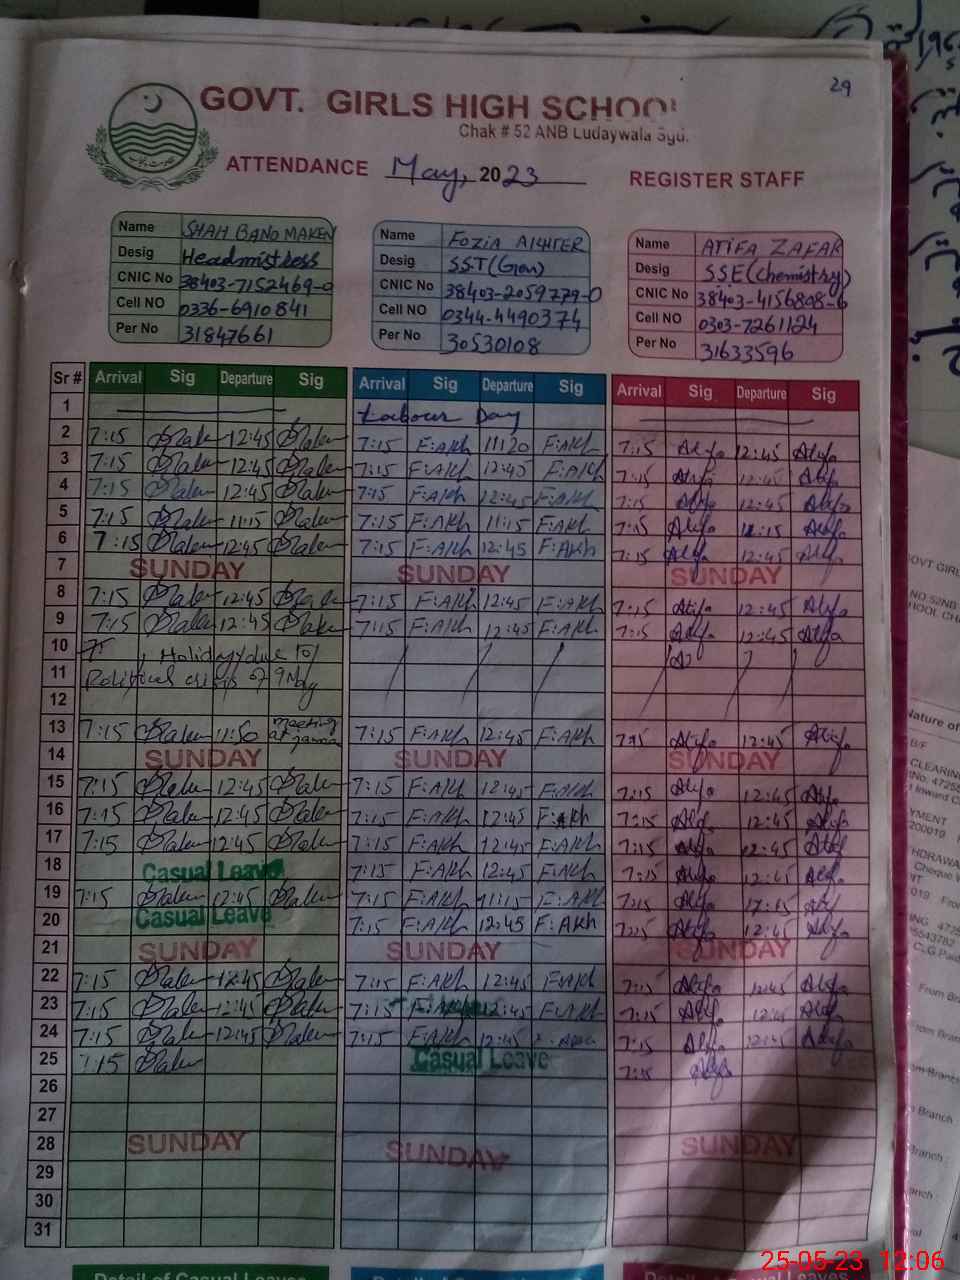 29
GOVT. GIRLS HIGH SCHOOL
Chak # 52 ANB Ludaywala Sgd.
ATTENDANCE May, 2023 REGISTER STAFF
Name SHAH BANO MAKEN
Desig Headmistress
CNIC No 38403-7152469-0
Cell NO 0336-6910841
Per No 31847661
Name FOZIA AKHTER
Desig SST(Gen)
CNIC No 38403-2059779-0
Cell NO 0344-4490374
Per No 30530108
Name ATIFA ZAFAR
Desig SSE(Chemistry)
CNIC No 38403-4156808-6
Cell NO 0303-7261124
Per No 31633596
Sr # Arrival Sig Departure Sig Arrival Sig Departure Sig Arrival Sig Departure Sig
1 Labour Day
2 7:15 Maken 12:45 Maken 7:15 F:AKh 11:20 F:AKh 7:15 Atifa 12:45 Atifa
3 7:15 Maken 12:45 Maken 7:15 F:AKh 12:45 F:AKh 7:15 Atifa 12:45 Atifa
4 7:15 Maken 12:45 Maken 7:15 F:AKh 12:45 F:AKh 7:15 Atifa 12:45 Atifa
5 7:15 Maken 11:15 Maken 7:15 F:AKh 11:15 F:AKh 7:15 Atifa 11:15 Atifa
6 7:15 Maken 12:45 Maken 7:15 F:AKh 12:45 F:AKh 7:15 Atifa 12:45 Atifa
7 SUNDAY SUNDAY SUNDAY
8 7:15 Maken 12:45 Maken 7:15 F:AKh 12:45 F:AKh 7:15 Atifa 12:45 Atifa
9 7:15 Maken 12:45 Maken 7:15 F:AKh 12:45 F:AKh 7:15 Atifa 12:45 Atifa
10 Holiday due to
11 Political crisis of 9 May
12
13 7:15 Maken 11:50 meeting at 7:15 F:AKh 12:45 F:AKh 7:15 Atifa 12:45 Atifa
14 SUNDAY SUNDAY SUNDAY
15 7:15 Maken 12:45 Maken 7:15 F:AKh 12:45 F:AKh 7:15 Atifa 12:45 Atifa
16 7:15 Maken 12:45 Maken 7:15 F:AKh 12:45 F:AKh 7:15 Atifa 12:45 Atifa
17 7:15 Maken 12:45 Maken 7:15 F:AKh 12:45 F:AKh 7:15 Atifa 12:45 Atifa
18 Casual Leave 7:15 F:AKh 12:45 F:AKh 7:15 Atifa 12:45 Atifa
19 7:15 Maken 12:45 Maken 7:15 F:AKh 11:15 F:AKh 7:15 Atifa Atifa
20 Casual Leave 7:15 F:AKh 12:45 F:AKh Atifa 12:45 Atifa
21 SUNDAY SUNDAY SUNDAY
22 7:15 Maken 12:45 Maken 7:15 F:AKh 12:45 F:AKh 7:15 Atifa 12:45 Atifa
23 7:15 Maken 12:45 Maken 7:15 12:45 F:AKh 7:15 Atifa 12:45 Atifa
24 7:15 Maken 12:45 Maken 7:15 F:AKh 12:45 7:15 Atifa 12:45 Atifa
25 7:15 Maken Casual Leave 7:15 Atifa
26
27
28 SUNDAY SUNDAY SUNDAY
29
30
31
25-05-23 12:06